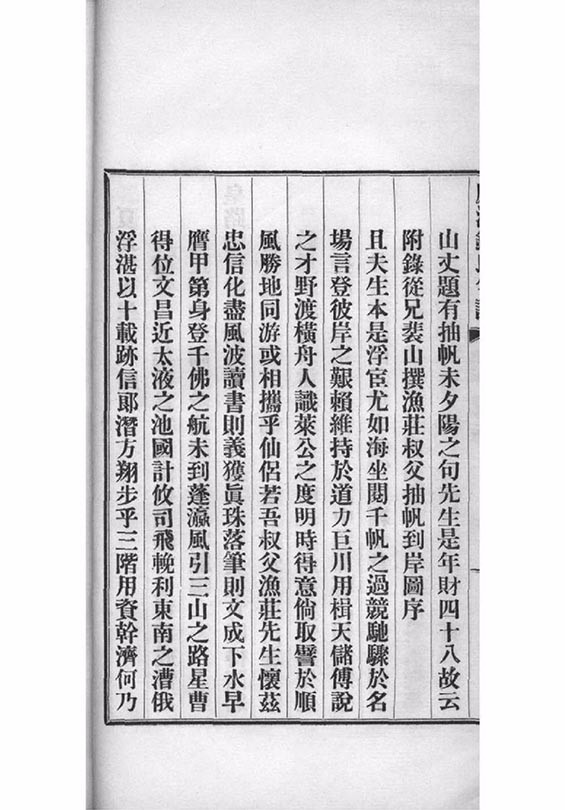 山丈題有抽帆未夕陽之句先生是年財四十八故云
附錄從兄裴山撰漁莊叔父抽帆到岸圖序
且夫生本是浮宦尤如海坐閱千帆之過競馳驟於名
場言登彼岸之艱賴維持於道力巨川用楫天儲傅說
之才野渡橫舟人識萊公之度明時得意倘取譬於順
風勝地同游或相攜乎仙侶若吾叔父漁莊先生懷茲
忠信化盡風波讀書則義獲眞珠落筆則文成下水早
膺甲第身登千佛之航未到蓬瀛風引三山之路星曹
得位文昌近太液之池國計攸司飛輓利東南之漕俄
浮湛以十載跡信郞潛方翔步乎三階用資幹濟何乃